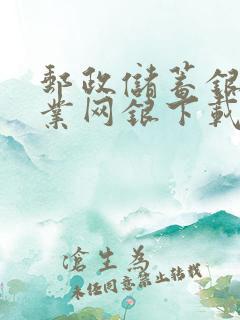 郵政儲蓄銀
業网銀下載
滄生為
未经同意禁止转载